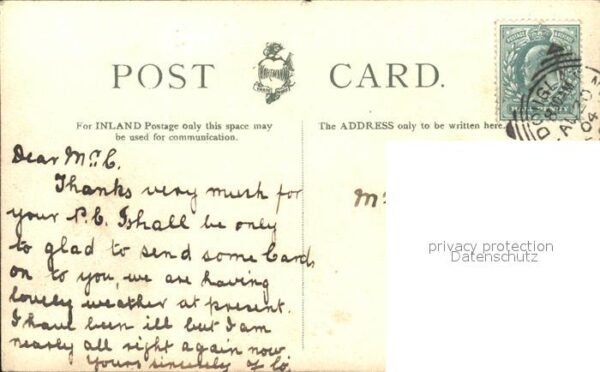 POST CARD.
For INLAND Postage only this space may
be used for communication.
The ADDRESS only to be written here.
Dear Mrs C.
Thanks very much for
your P.C. I shall be only
to glad to send some Cards
on to you, we are having
lovely weather at present.
I have been ill but I am
nearly all right again now
Yours sincerely
privacy protection
Datenschutz
DOUGLAS
04